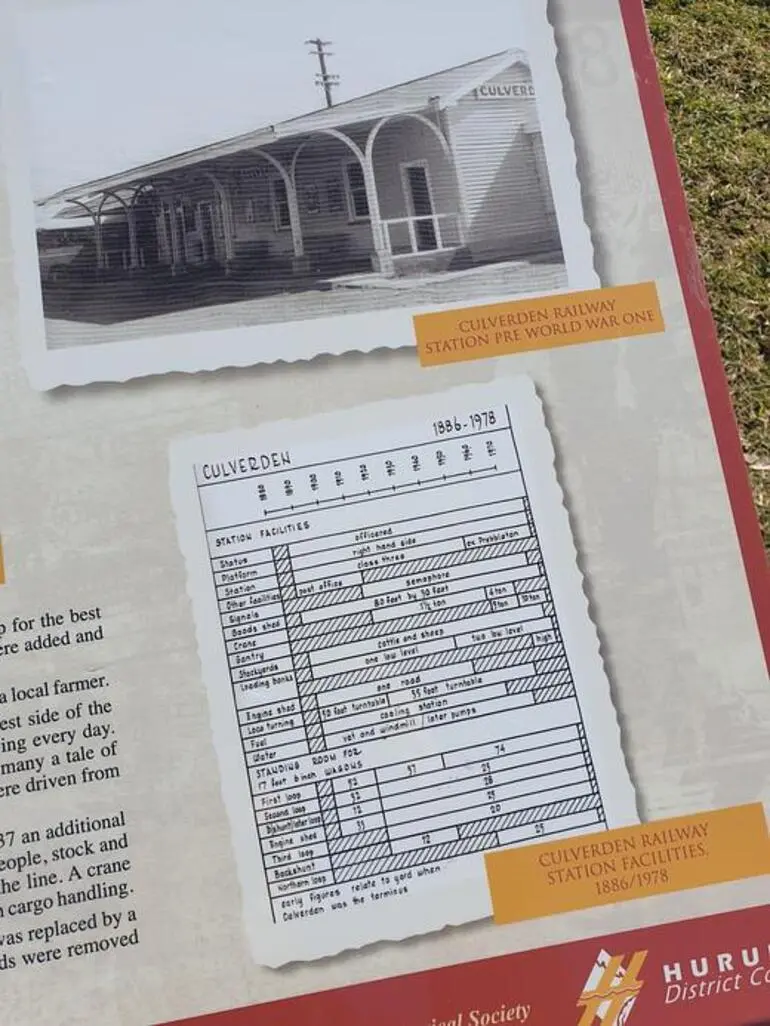 CULVERD
CULVERDEN RAILWAY
STATION PRE WORLD WAR ONE
CULVERDEN 1886-1978
1880 1890 1900 1910 1920 1930 1940 1950 1960 1970
STATION FACILITIES
Status officered
Platform right hand side
Station class three ex Prebbleton
Other facilities post office
Signals semaphore
Goods shed 80 feet by 30 feet
Crane 1½ ton 6 ton
Gantry 10 ton
Stockyards cattle and sheep
Loading banks one low level two low level high
Engine shed one road
Loco turning 50 foot turntable 55 foot turntable
Fuel coaling station
Water vat and windmill / later pumps
STANDING ROOM FOR
17 feet 6 inch WAGONS
First loop 52 57 74
Second loop 52 25
Backshunt/later loop 12 28
Engine shed 33 25
Third loop 20
Backshunt 12
Northern loop 25
early figures relate to yard when
Culverden was the terminus
CULVERDEN RAILWAY
STATION FACILITIES,
1886/1978
p for the best
ere added and
a local farmer.
est side of the
ing every day.
many a tale of
ere driven from
37 an additional
eople, stock and
he line. A crane
cargo handling.
was replaced by a
ds were removed
ical Society
HURU
District Co